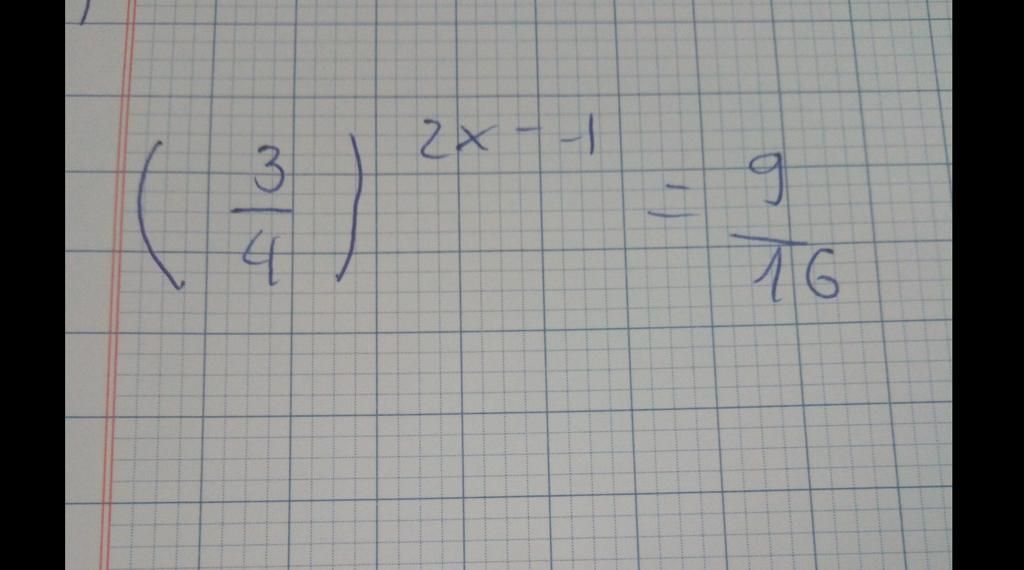 (3/4)^{2x - -1} = 9/16